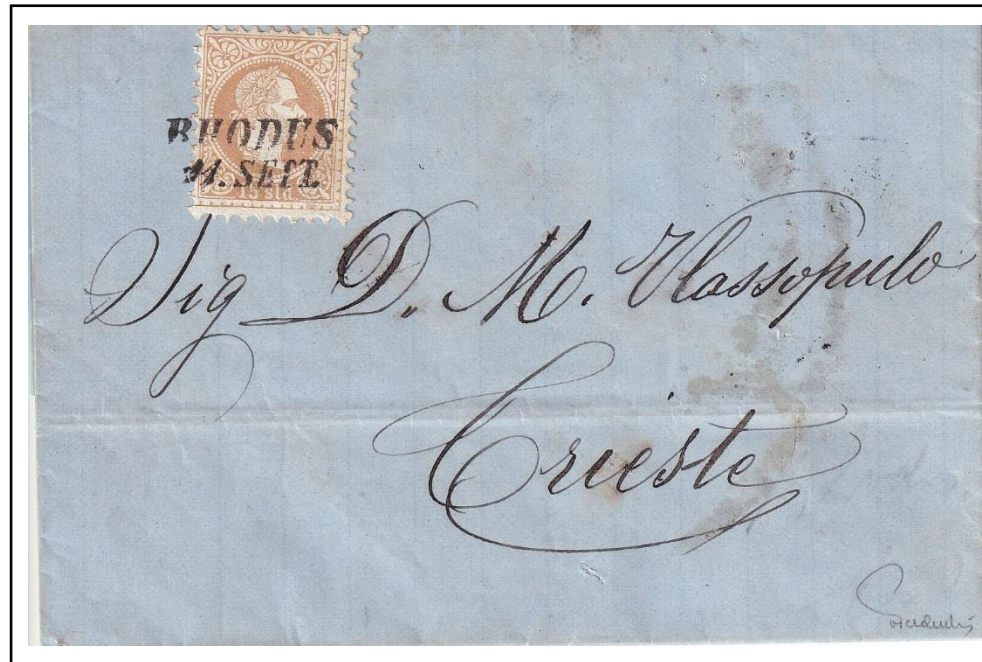 RHODUS
11. SEPT.
15 sld.
Sig D. M. Vlassopulo
Trieste